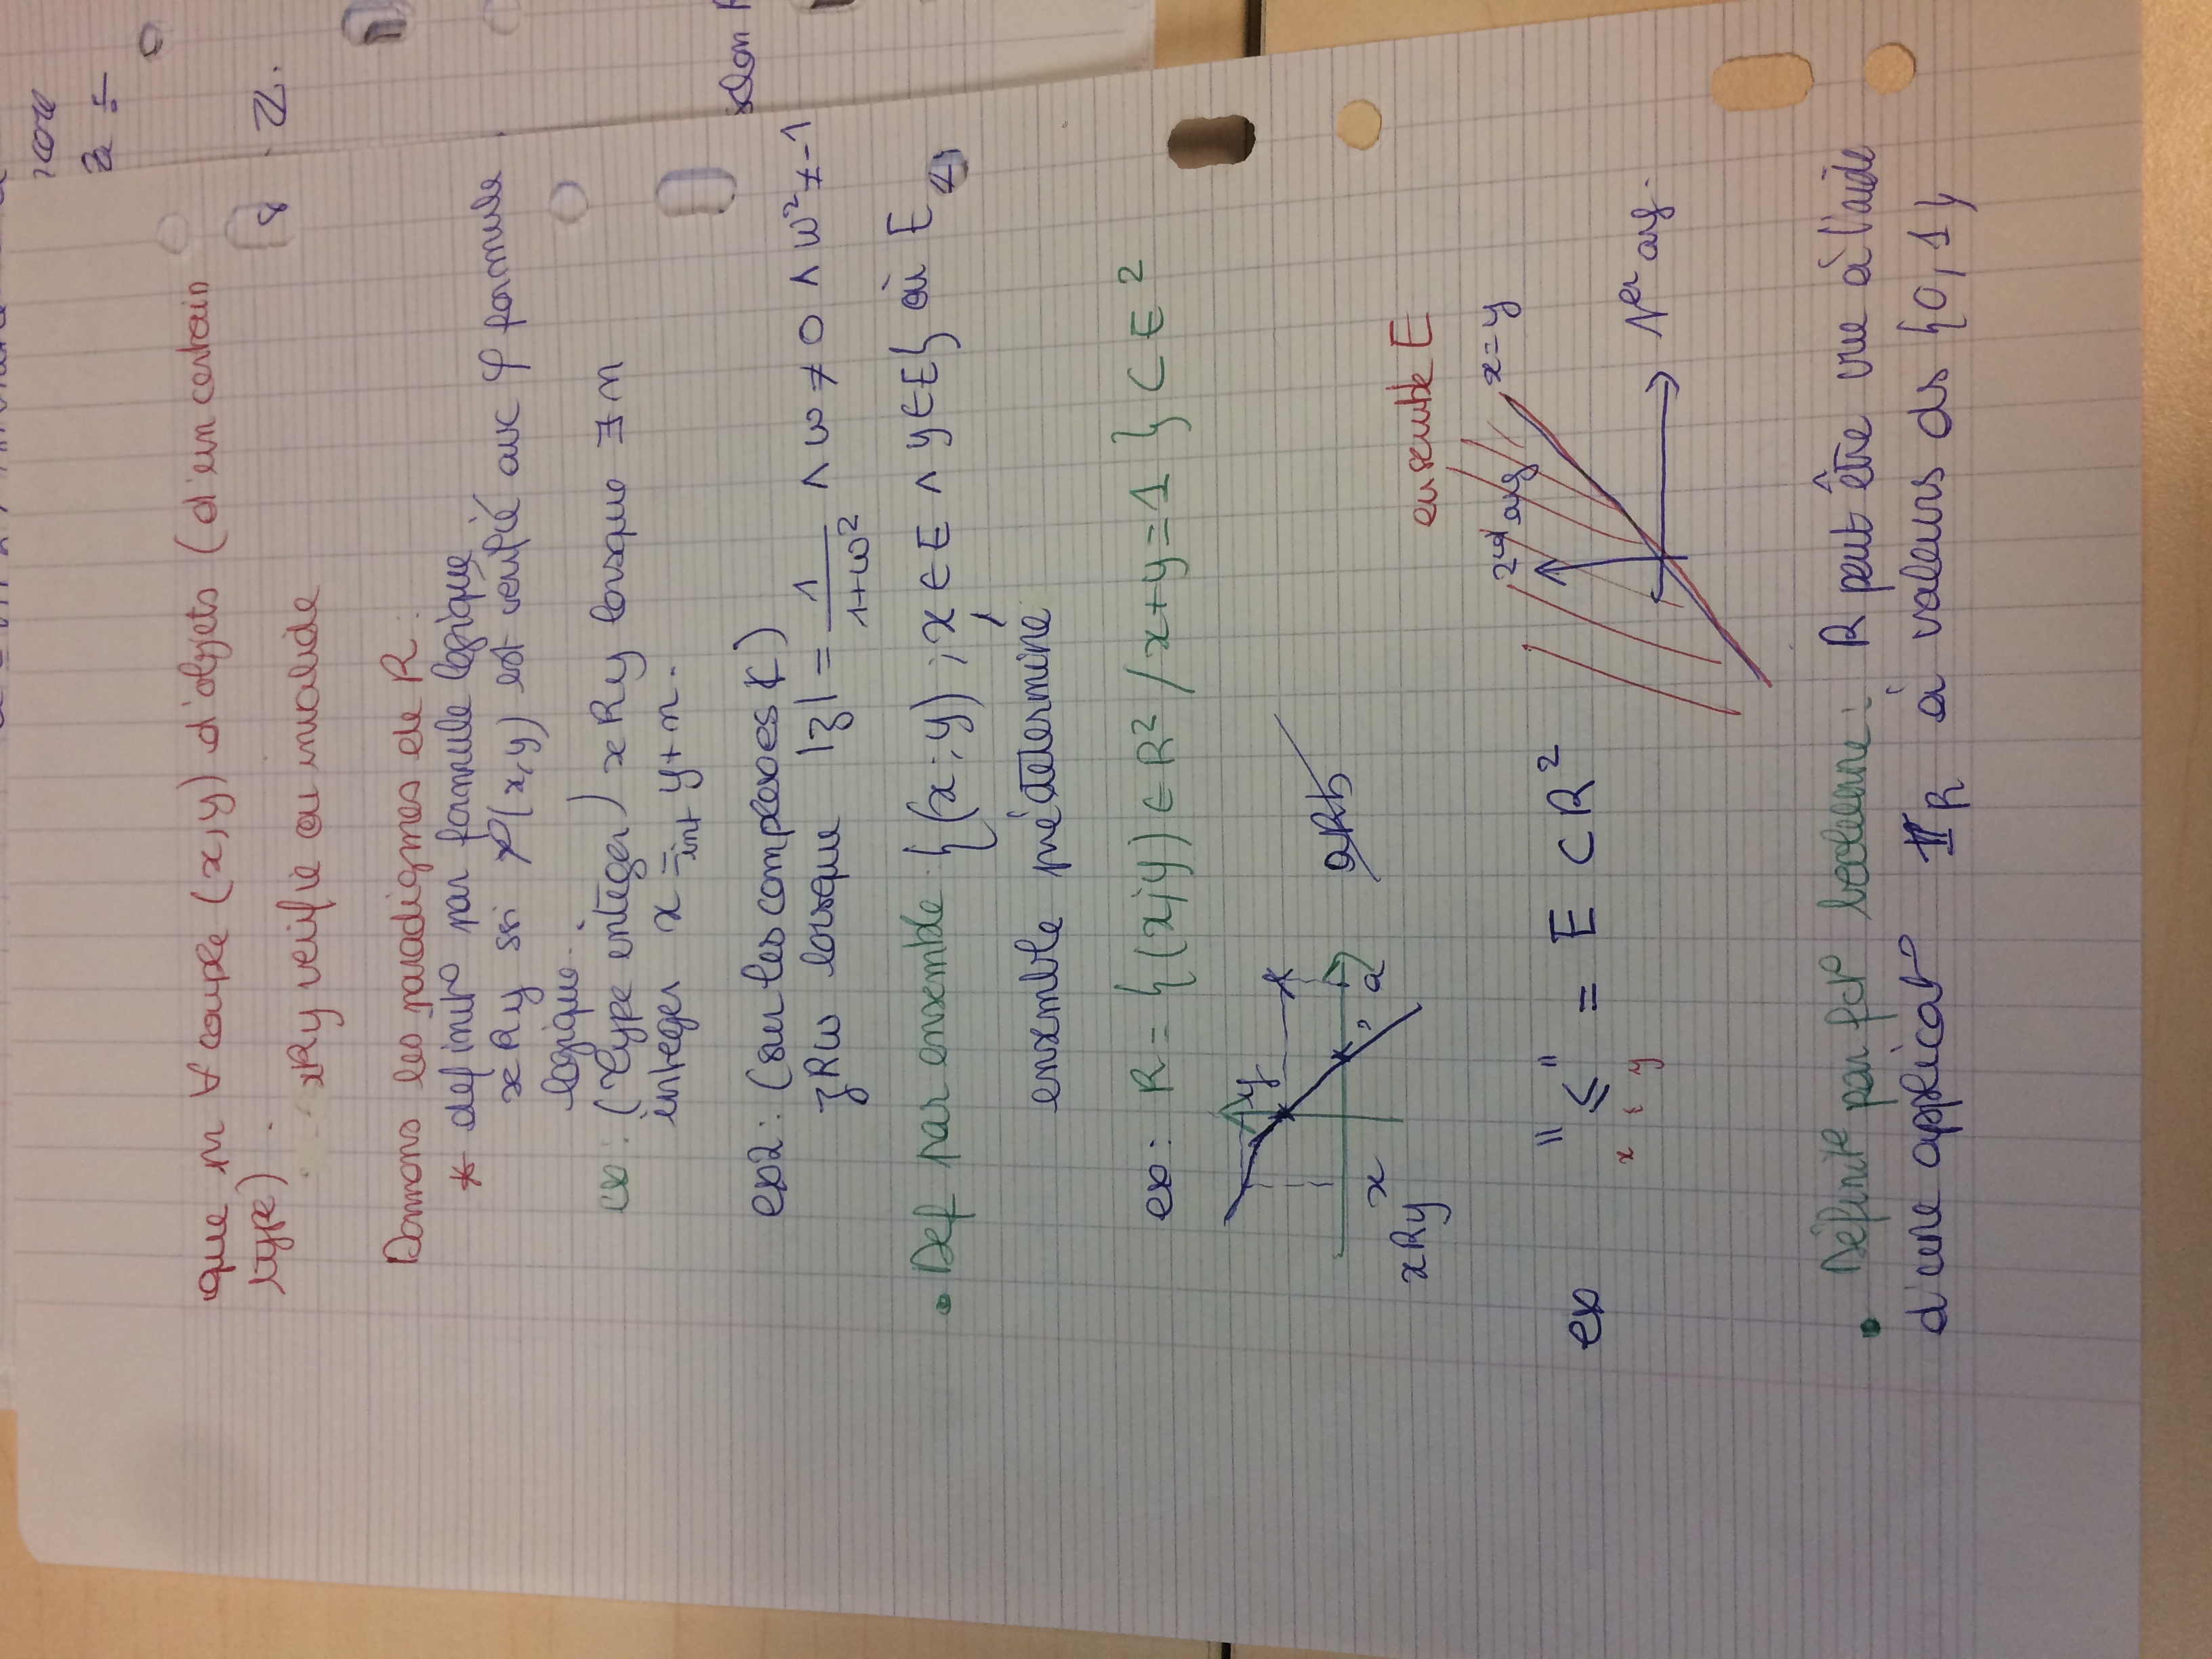 que m ∀ couple (x,y) d'objets (d'un certain
type).
xRy verifie ou invalide
Donnons les paradigmes de R :
* definit° par formule logique.
xRy ssi φ(x,y) est vérifié avec φ formule
logique.
ex : (type integer) xRy lorsque ∃ n
integer x =int y+n.
ex2 : (sur les complexes ℂ)
zRw lorsque |z| = 1/(1+w²) ∧ w ≠ 0 ∧ w² ≠ -1
• Def par ensemble {(x;y) ; x ∈ E ∧ y ∈ E} où E
ensemble prédéterminé
ex : R = {(x;y) ∈ R² / x+y=1} ⊂ E²
y
x
a
aRb
xRy
ensemble E
2nd arg
x=y
ex "≤" = E ⊂ R²
x ≤ y
1er arg.
• Définit° par fct° booleenne : R peut être vue à l'aide
d'une applicat° 𝟙R à valeurs ds {0,1}
8
selon